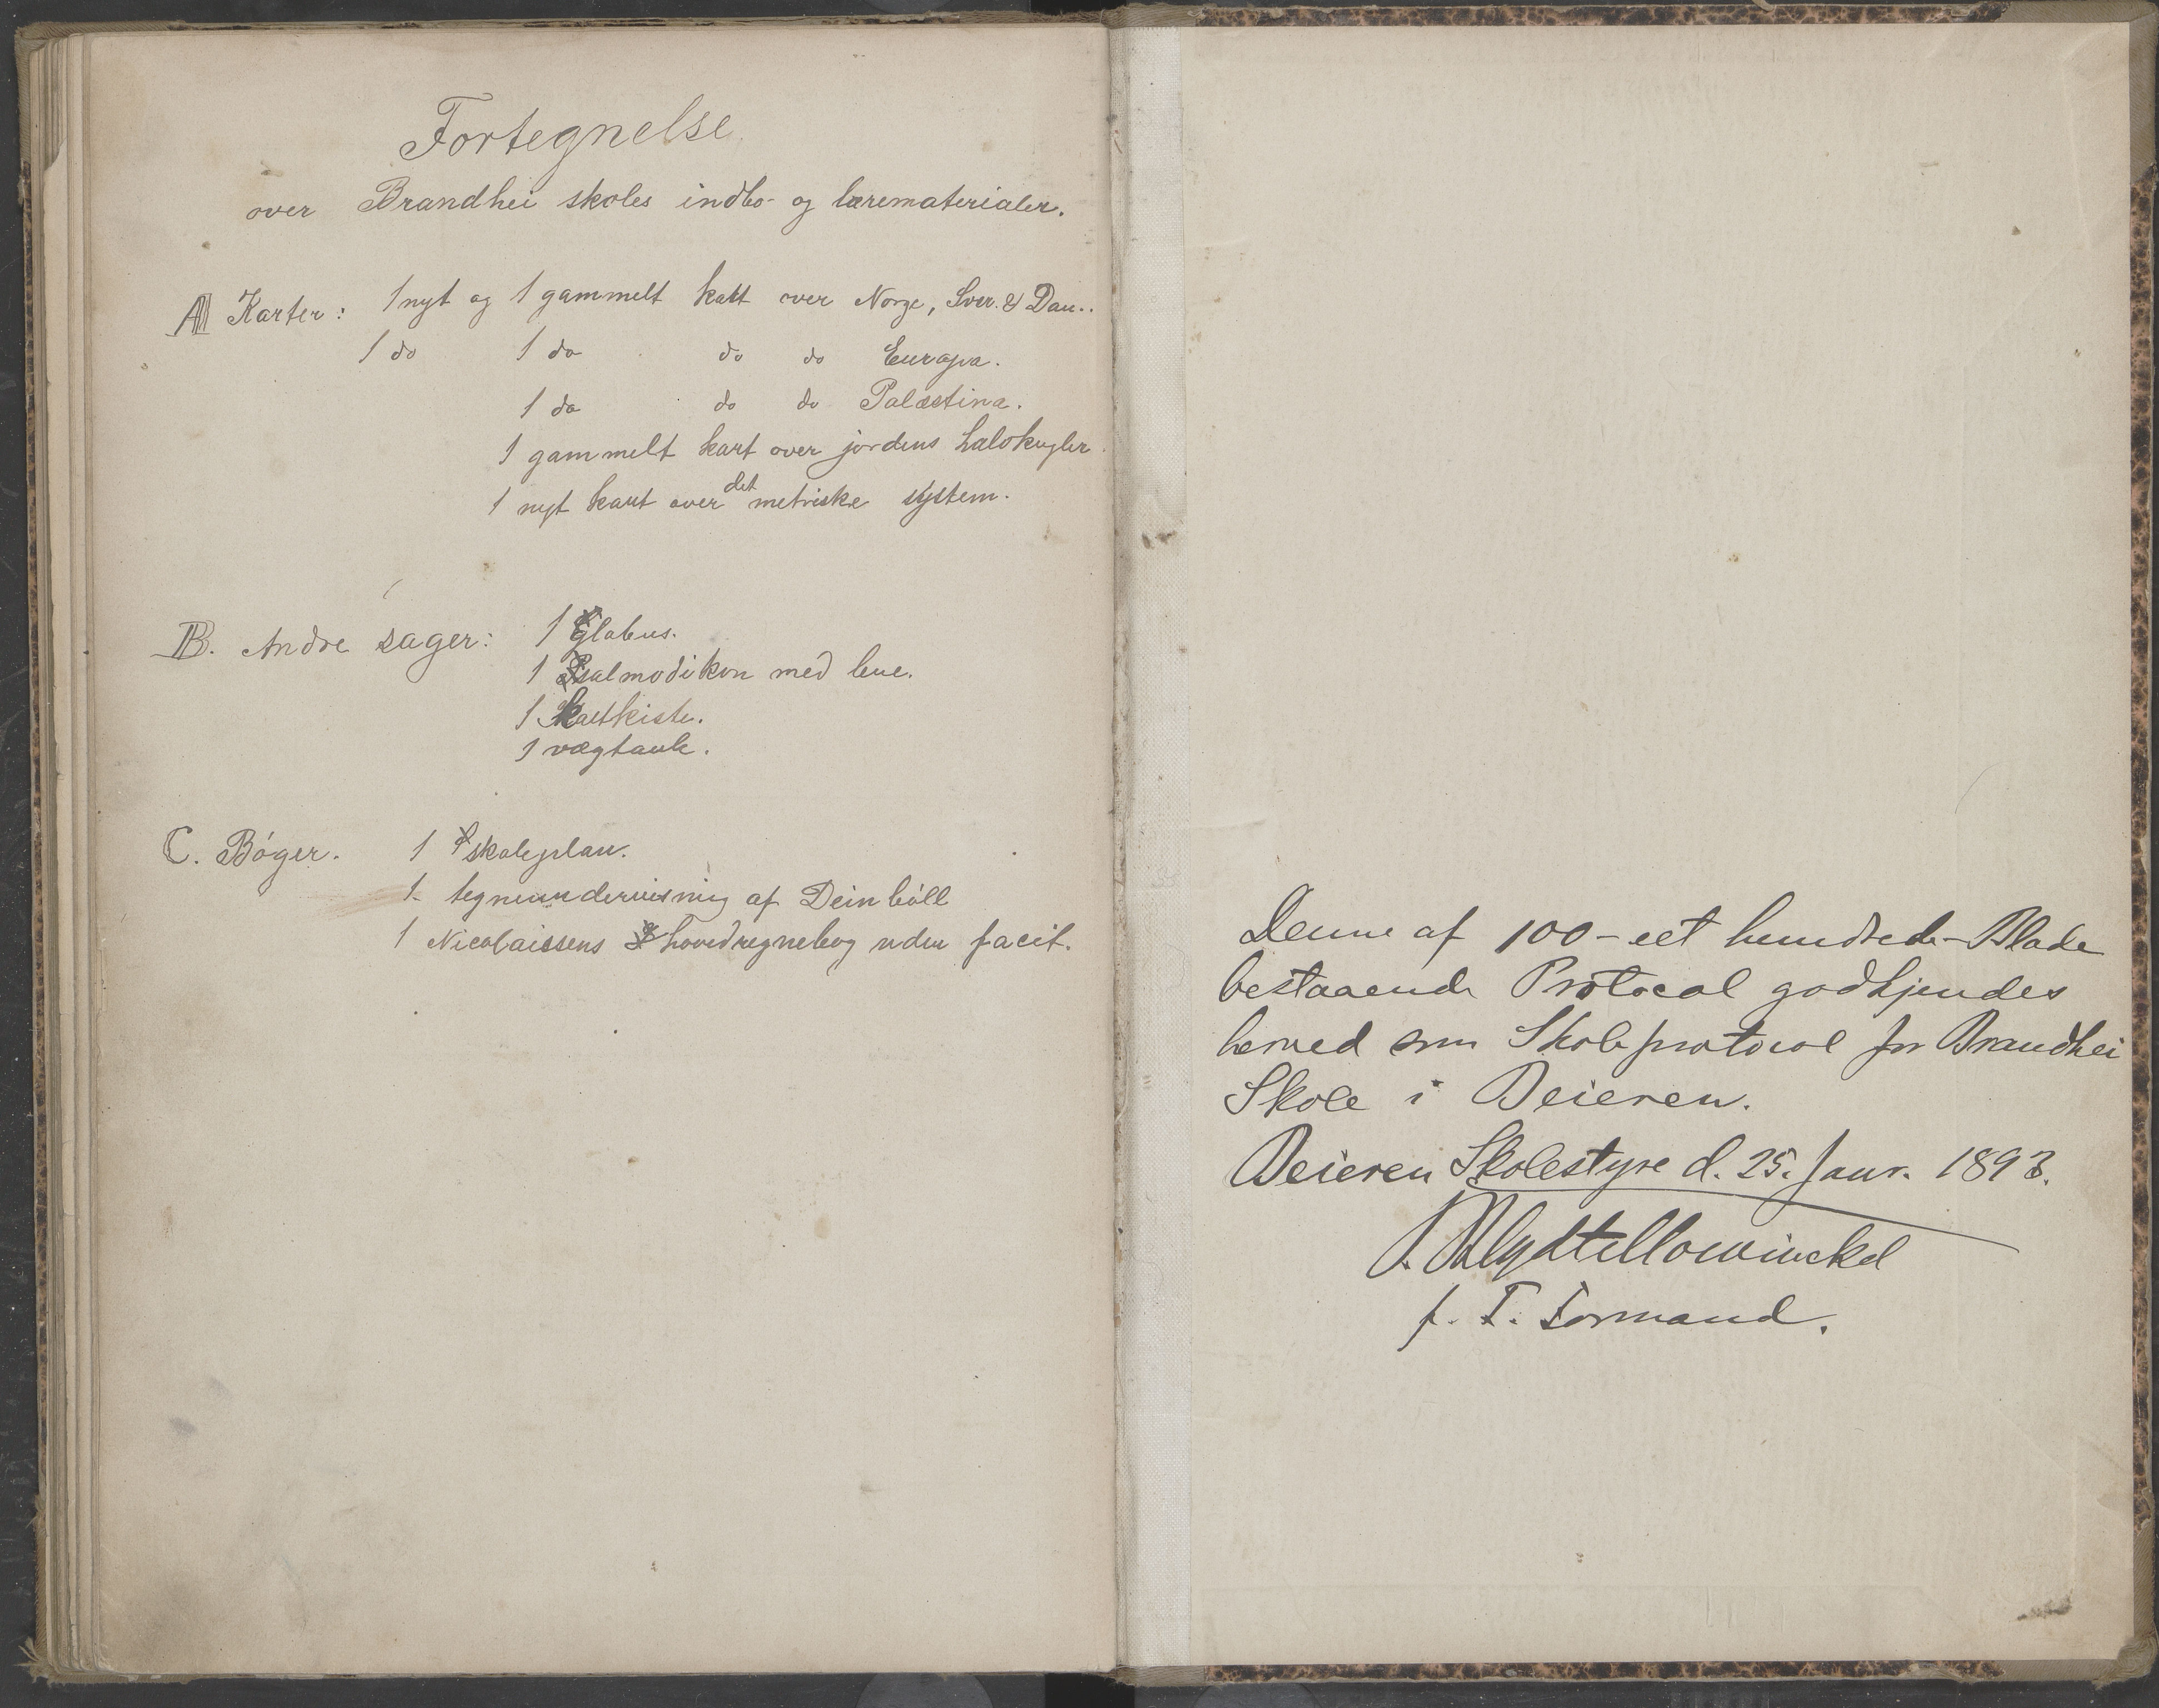 Fortegnelse
over Brandhei skoles indbo- og lærematerialer.
A Karter: 1 nyt og 1 gammelt kart over Norge, Sver. & Dan..
1 do 1 do do do Europa.
1 do do do Palæstina.
1 gammelt kart over jordens halvkugler.
1 nyt kart over det metriske system.
B. Andre sager: 1 globus.
1 Psalmodikon med bue.
1 kartkiste.
1 vægtavle.
C. Bøger. 1 skoleplan.
1 tegneundervisning af Deinbøll
1 Nicolaissens hovedregnebog uden facit.
Denne af 100 - eet hundrede - Blade
bestaaende Protocol godkjendes
herved som Skoleprotocol for Brandhei
Skole i Beieren.
Beieren Skolestyre d. 25. Janr. 1893.
f. T. Formand.